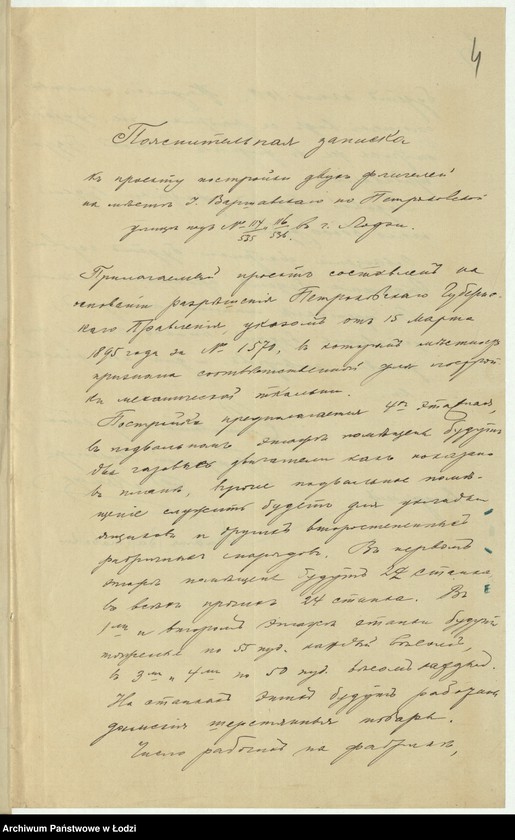 4
Пояснительная записка
къ проекту постройки двухъ флигелей
на мѣстѣ І. Варшавскаго по Петроковской
улицѣ подъ №№ 114/535 116/536 въ г. Лодзи.
Прилагаемый проектъ составленъ на
основаніи разрѣшенія Петроковскаго Губернс-
каго Правленія, указомъ отъ 15 Марта
1895 года за № 1570, въ которомъ мѣстность
признана соотвѣтственной для построй
ки механической ткальни.
Постройка предполагается 4хъ этажная,
въ подвальномъ этажѣ помѣщены будутъ
два газовыхъ двигателя какъ показано
въ планѣ, кромѣ подвальное помѣ-
щеніе служить будетъ для укладки
ящиковъ и другихъ второстепенныхъ
фабричныхъ снарядовъ. Въ первомъ
этажѣ помѣщены будутъ 22 станка,
въ всѣхъ прочихъ 24 станка. Въ
1мъ и второмъ этажѣ станки будутъ
тяжелые по 55 пуд. каждый вѣсомъ,
въ 3мъ и 4мъ по 50 пуд. вѣсомъ каждый.
На станкахъ этихъ будутъ работаны
дамскія шерстяныя товары.
Число рабочихъ на фабрикѣ,
Archiwum Państwowe w Łodzi